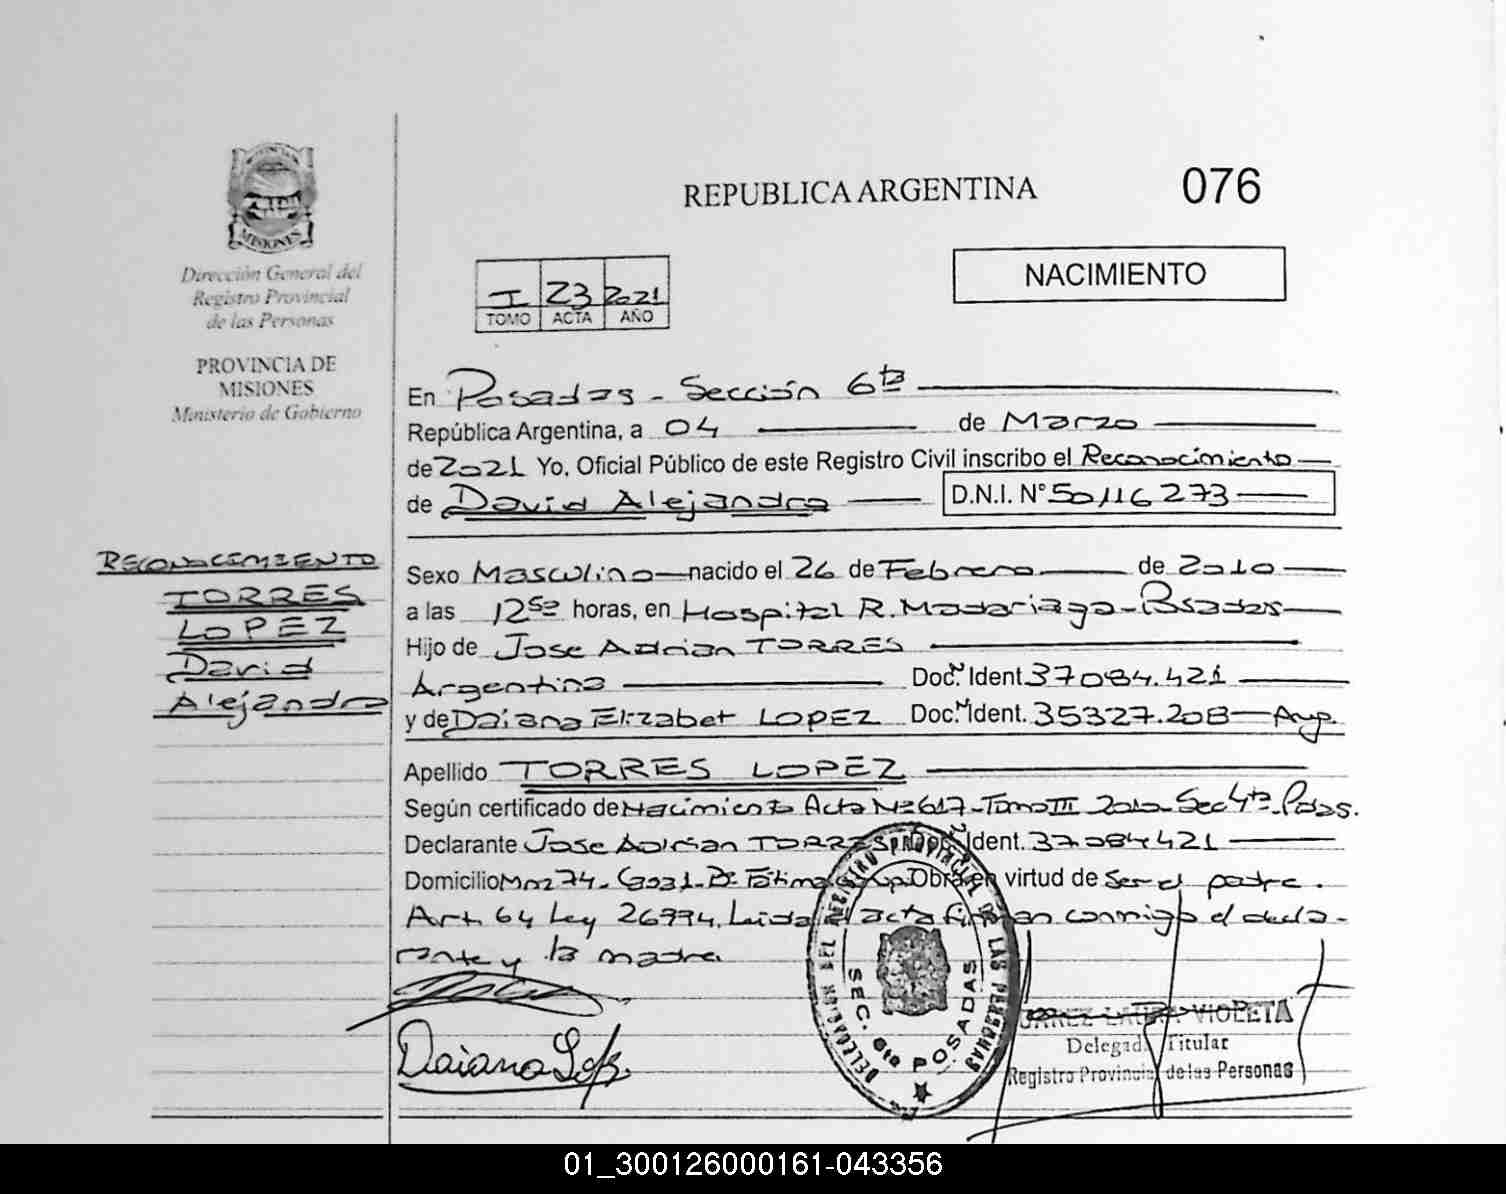 PROVINCIA DE
MISIONES
Dirección General del
Registro Provincial
de las Personas
PROVINCIA DE
MISIONES
Ministerio de Gobierno
REPUBLICA ARGENTINA
076
NACIMIENTO
I 23 2021
TOMO ACTA AÑO
En Posadas - Sección 6ta
República Argentina, a 04 de Marzo
de 2021 Yo, Oficial Público de este Registro Civil inscribo el Reconocimiento
de David Alejandro D.N.I. N° 50116273
RECONOCIMIENTO
TORRES
LOPEZ
David
Alejandro
Sexo Masculino nacido el 26 de Febrero de 2010
a las 12 50 horas, en Hospital R. Madariaga - Posadas
Hijo de Jose Adrian TORRES
Argentina Doc. N Ident. 37084.421
y de Daiana Elizabet LOPEZ Doc. N Ident. 35327.208 - Arg.
Apellido TORRES LOPEZ
Según certificado de Nacimiento Acta Nº 617 - Tomo III 2010 - Sec 4ta - Pdas.
Declarante Jose Adrian TORRES Doc. Ident. 37084421
Domicilio Mnz 74 - Casa 1 - Bº Fátima Ocup. Obra en virtud de ser el padre.
Art. 64 Ley 26994. Leida el acta firman conmigo el decla-
rante y la madre
Daiana Lopez
DELEGACION DEL REGISTRO PROVINCIAL DE LAS PERSONAS
SEC. 6ta POSADAS
LAURA VIOLETA
Delegada Titular
Registro Provincial de las Personas
01_300126000161-043356